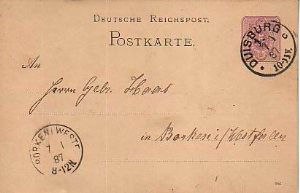 DEUTSCHE REICHSPOST.
POSTKARTE.
DUISBURG
An
Herrn Gebr. Haas
in Borken i/Westfalen
BORKEN I WESTF
7 1
87
8-12N